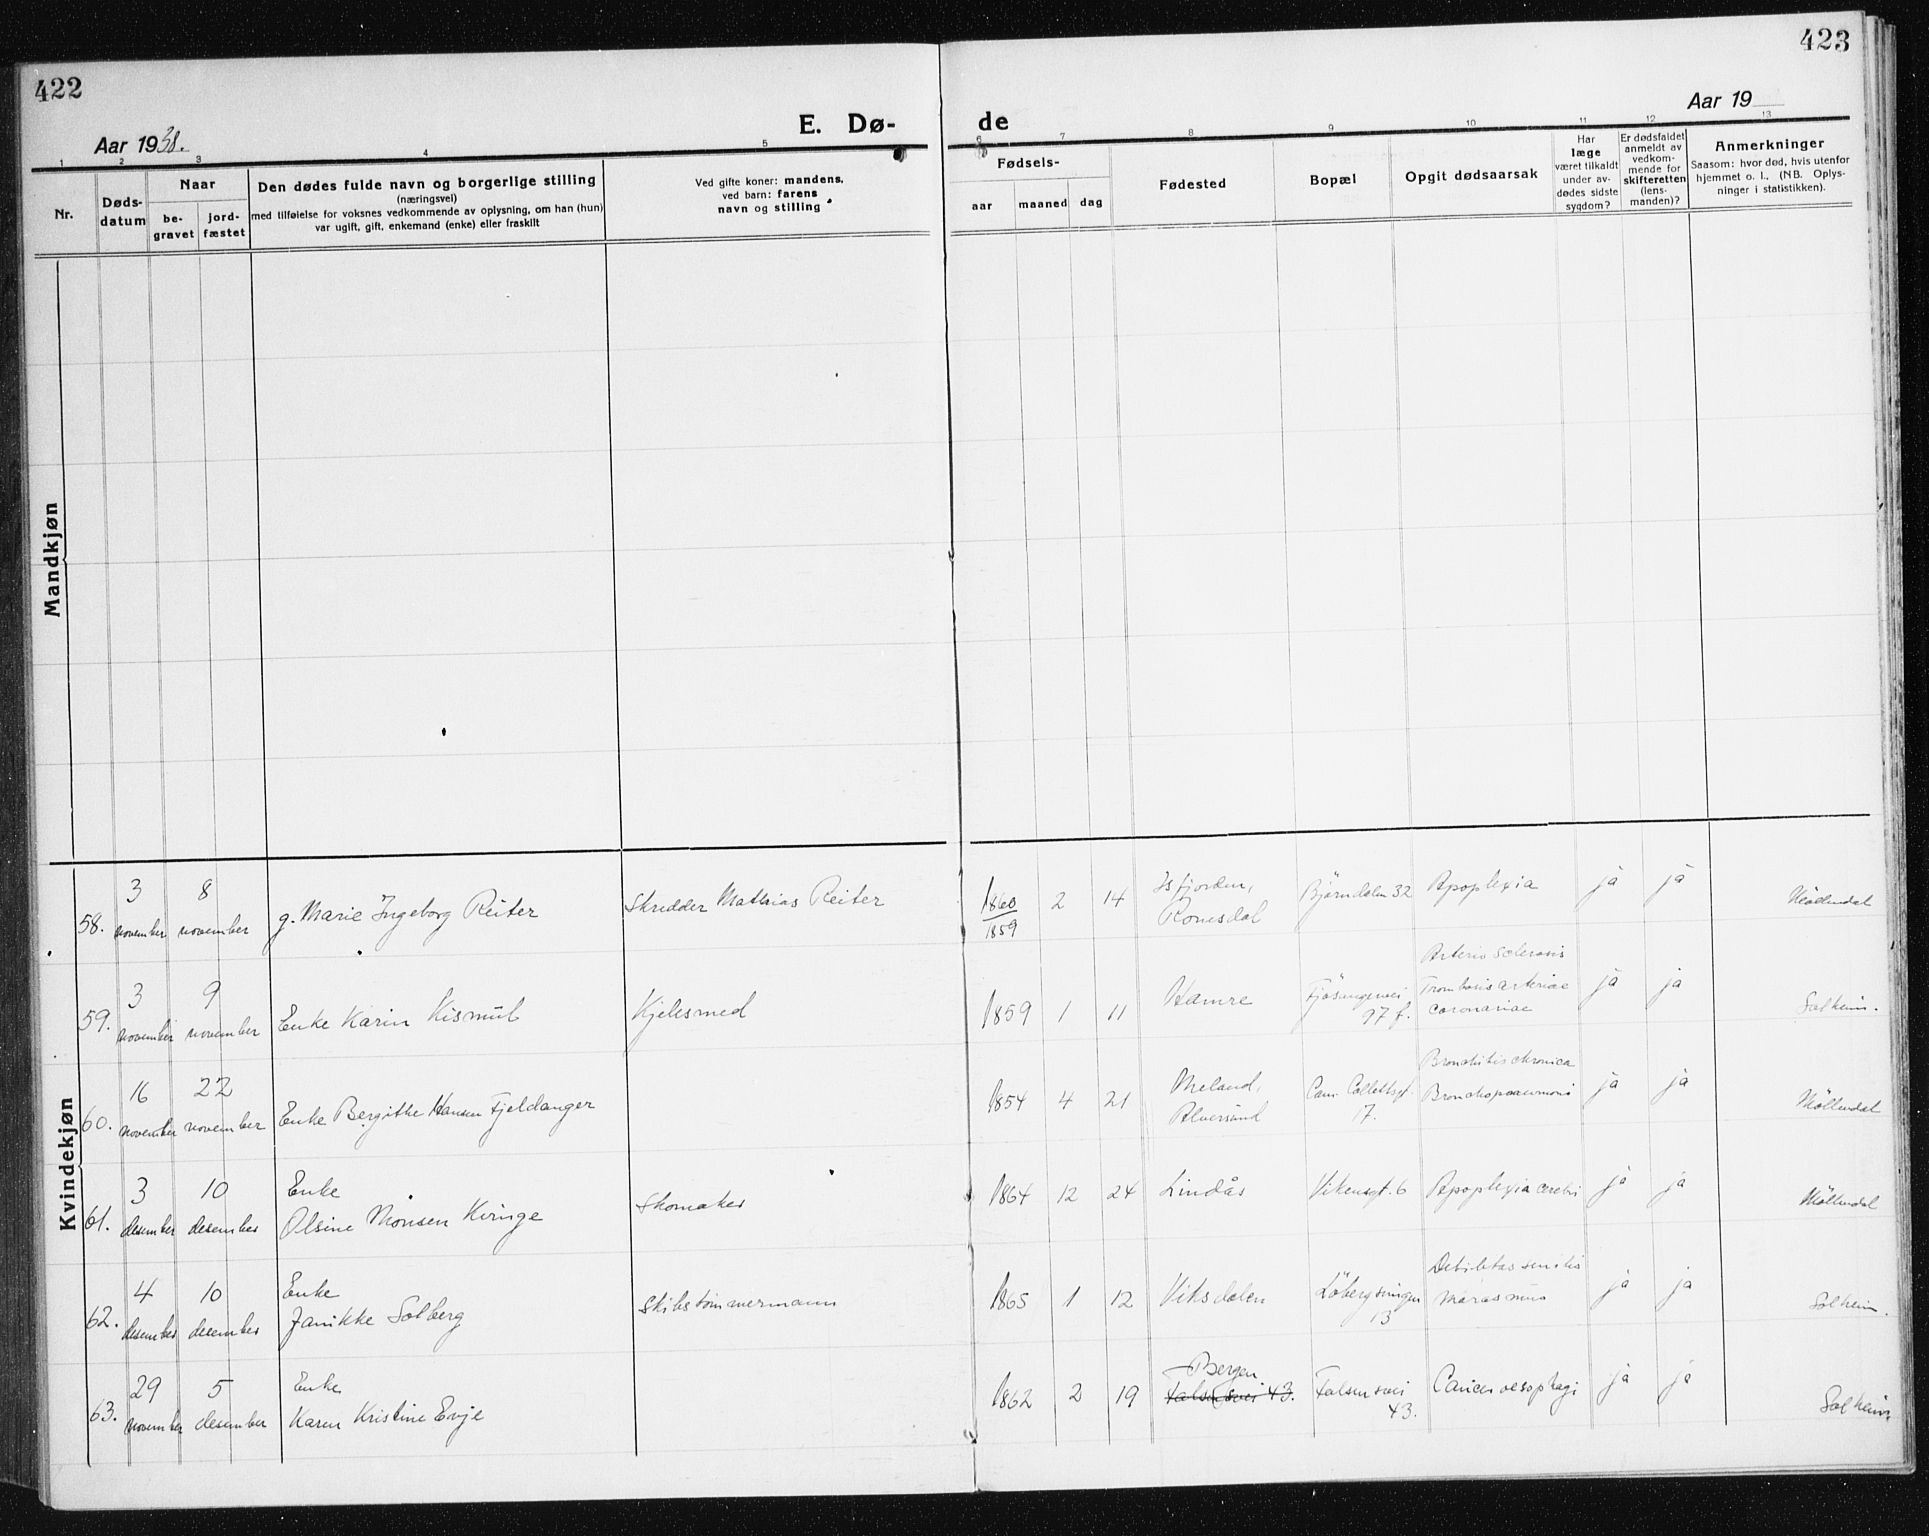 422
423
Aar 1938.
E. Dø-
de
Aar 19
1 2 3 4 5
6 7 8 9 10 11 12 13
Nr.
Døds-
datum
Naar
be-
gravet
jord-
fæstet
Den dødes fulde navn og borgerlige stilling
(næringsvei)
med tilføielse for voksnes vedkommende av oplysning, om han (hun)
var ugift, gift, enkemand (enke) eller fraskilt
Ved gifte koner: mandens,
ved barn: farens
navn og stilling
Fødsels-
aar
maaned
dag
Fødested
Bopæl
Opgit dødsaarsak
Har
læge
været tilkaldt
under av-
dødes sidste
sygdom?
Er dødsfaldet
anmeldt av
vedkom-
mende for
skifteretten
(lens-
manden)?
Anmerkninger
Saasom: hvor død, hvis utenfor
hjemmet o. l., (NB. Oplys-
ninger i statistikken).
Mandkjøn
Kvindekjøn
58.
3
november
8
november
g. Marie Ingeborg Reiter
Skredder Mathias Reiter
1860
1859
2
14
Isfjorden,
Romsdal
Björndalen 32
Apoplexia
ja
ja
Möllendal
59.
3
november
9
november
Enke Karin Kismul
Kjelesmed
1859
1
11
Hamre
Fjösangervei
97 f.
Arterio sclerosis
Trombosis arteriae
coronariae
ja
ja
Solheim.
60.
16
november
22
november
Enke Bergithe Hansen Fjeldanger
1854
4
21
Meland,
Alversund
Cam. Collettsgt.
17.
Bronchitis chronica
Bronchopneumoni
ja
ja
Möllendal
61.
3
desember
10
desember
Enke
Olsine Monsen Kvinge
Skomaker
1864
12
24
Lindås
Vikensgt. 6
Apoplexia cerebri
ja
ja
Möllendal
62.
4
desember
10
desember
Enke
Janikke Solberg
Skibstømmermann
1865
1
12
Viksdalen
Löbergsveien
13
Debilitas senilis
Marasmus
ja
ja
Solheim.
63.
29
november
5
desember
Enke
Karen Kristine Evje
1862
2
19
Bergen
Falsensvei 43.
Falsensvei
43.
Cancer oesophagi
ja
ja
Solheim